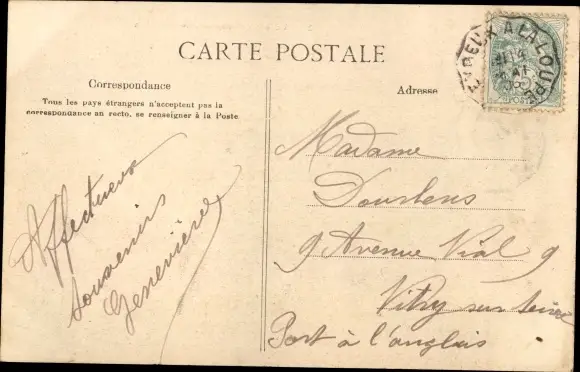 CARTE POSTALE
Correspondance
Tous les pays étrangers n'acceptent pas la
correspondance au recto, se renseigner à la Poste
Affectueux
souvenirs
Geneviève
Adresse
EVREUX A LA-LOUPE
Madame
Dourlens
9 Avenue Vial 9
Vitry sur Seine
Port à l'anglais